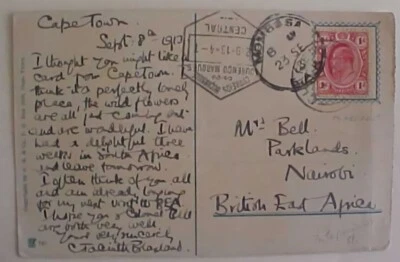 Cape Town.
Sept. 8th 1913
I thought you might like a
card from Capetown. I
think it's a perfectly lovely
place, the wild flowers
are all just coming out
and are wonderful. I have
had a delightful three
weeks in South Africa
and leave tomorrow.
I often think of you all
and am already longing
for my next visit to BEA
I hope you & Colonel Bell
are both very well.
Yours very sincerely
CENTRAL
MOMBASA
23 SE
Mrs Bell.
Parklands.
Nairobi
British East Africa